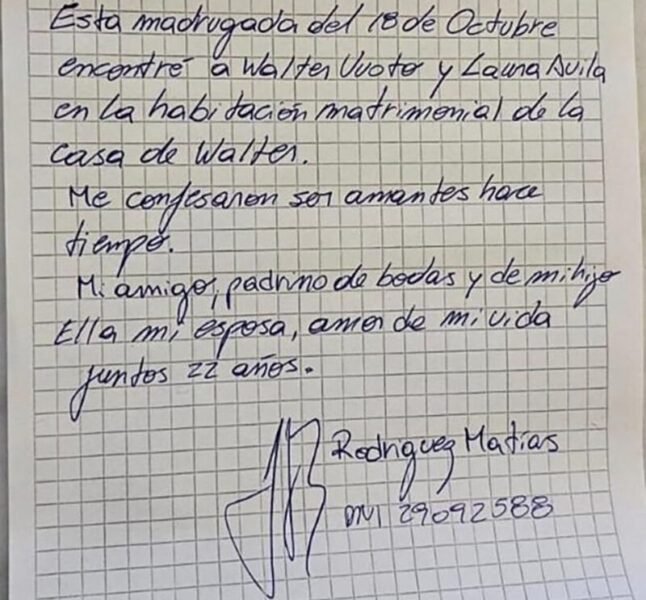 Esta madrugada del 18 de Octubre
encontré a Walter Vuoto y Laura Avila
en la habitación matrimonial de la
casa de Walter.
Me confesaron ser amantes hace
tiempo.
Mi amigo, padrino de bodas y de mi hijo
Ella mi esposa, amor de mi vida
juntos 22 años.
Rodriguez Matías
DNI 29092588